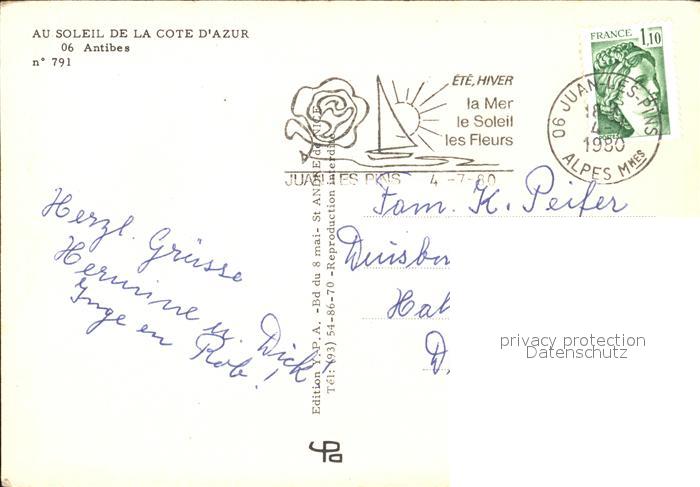 AU SOLEIL DE LA COTE D'AZUR
06 Antibes
n° 791
ÉTÉ, HIVER
la Mer
le Soleil
les Fleurs
JUAN LES PINS 4 -7-80
FRANCE 1,10
06 JUAN-LES-PINS
18
4-
1980
ALPES MMES
Herzl. Grüsse
Hermine u. Dick!
Inge en Rob!
Edition Y.P.A. -Bd du 8 mai- St ANDRÉ de NICE
Tél: (93) 54-86-70 -Reproduction interdite
Fam. K. Peifer
Duisbor
Hal
D,
privacy protection
Datenschutz